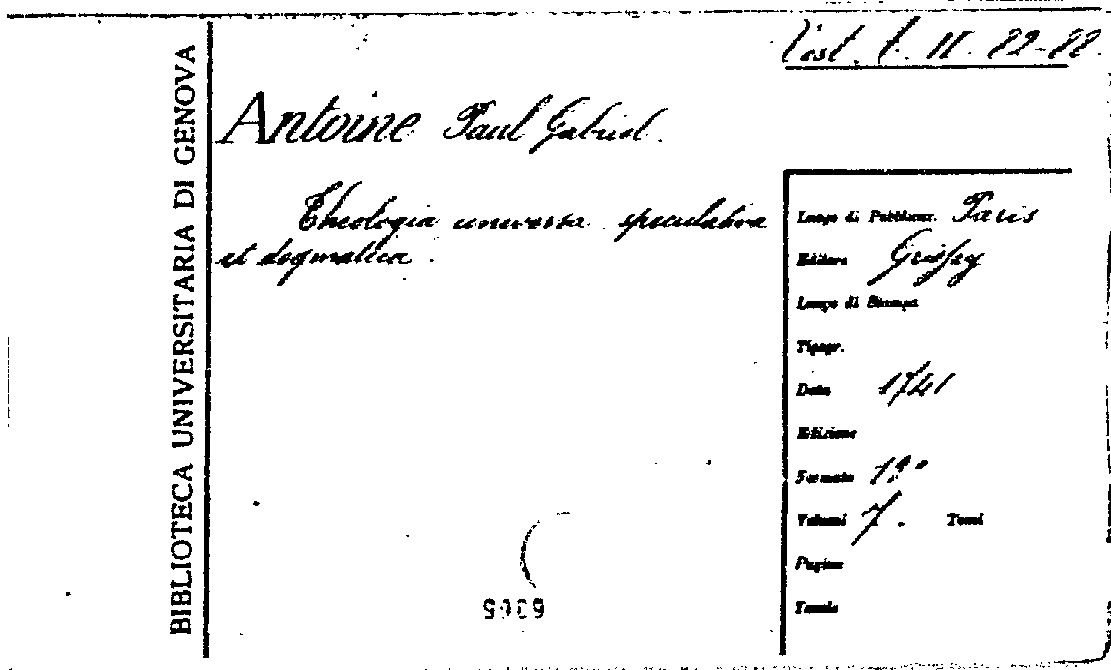 BIBLIOTECA UNIVERSITARIA DI GENOVA
II. 82-88.
Antoine Paul Gabriel.
Theologia universa speculativa
et dogmatica.
Luogo di Pubblicaz. Paris
Editore
Luogo di Stampa
Tipogr.
Data 1741
Edizione
Formato 12°
Volumi 7. Tomi
Pagine
Tavole